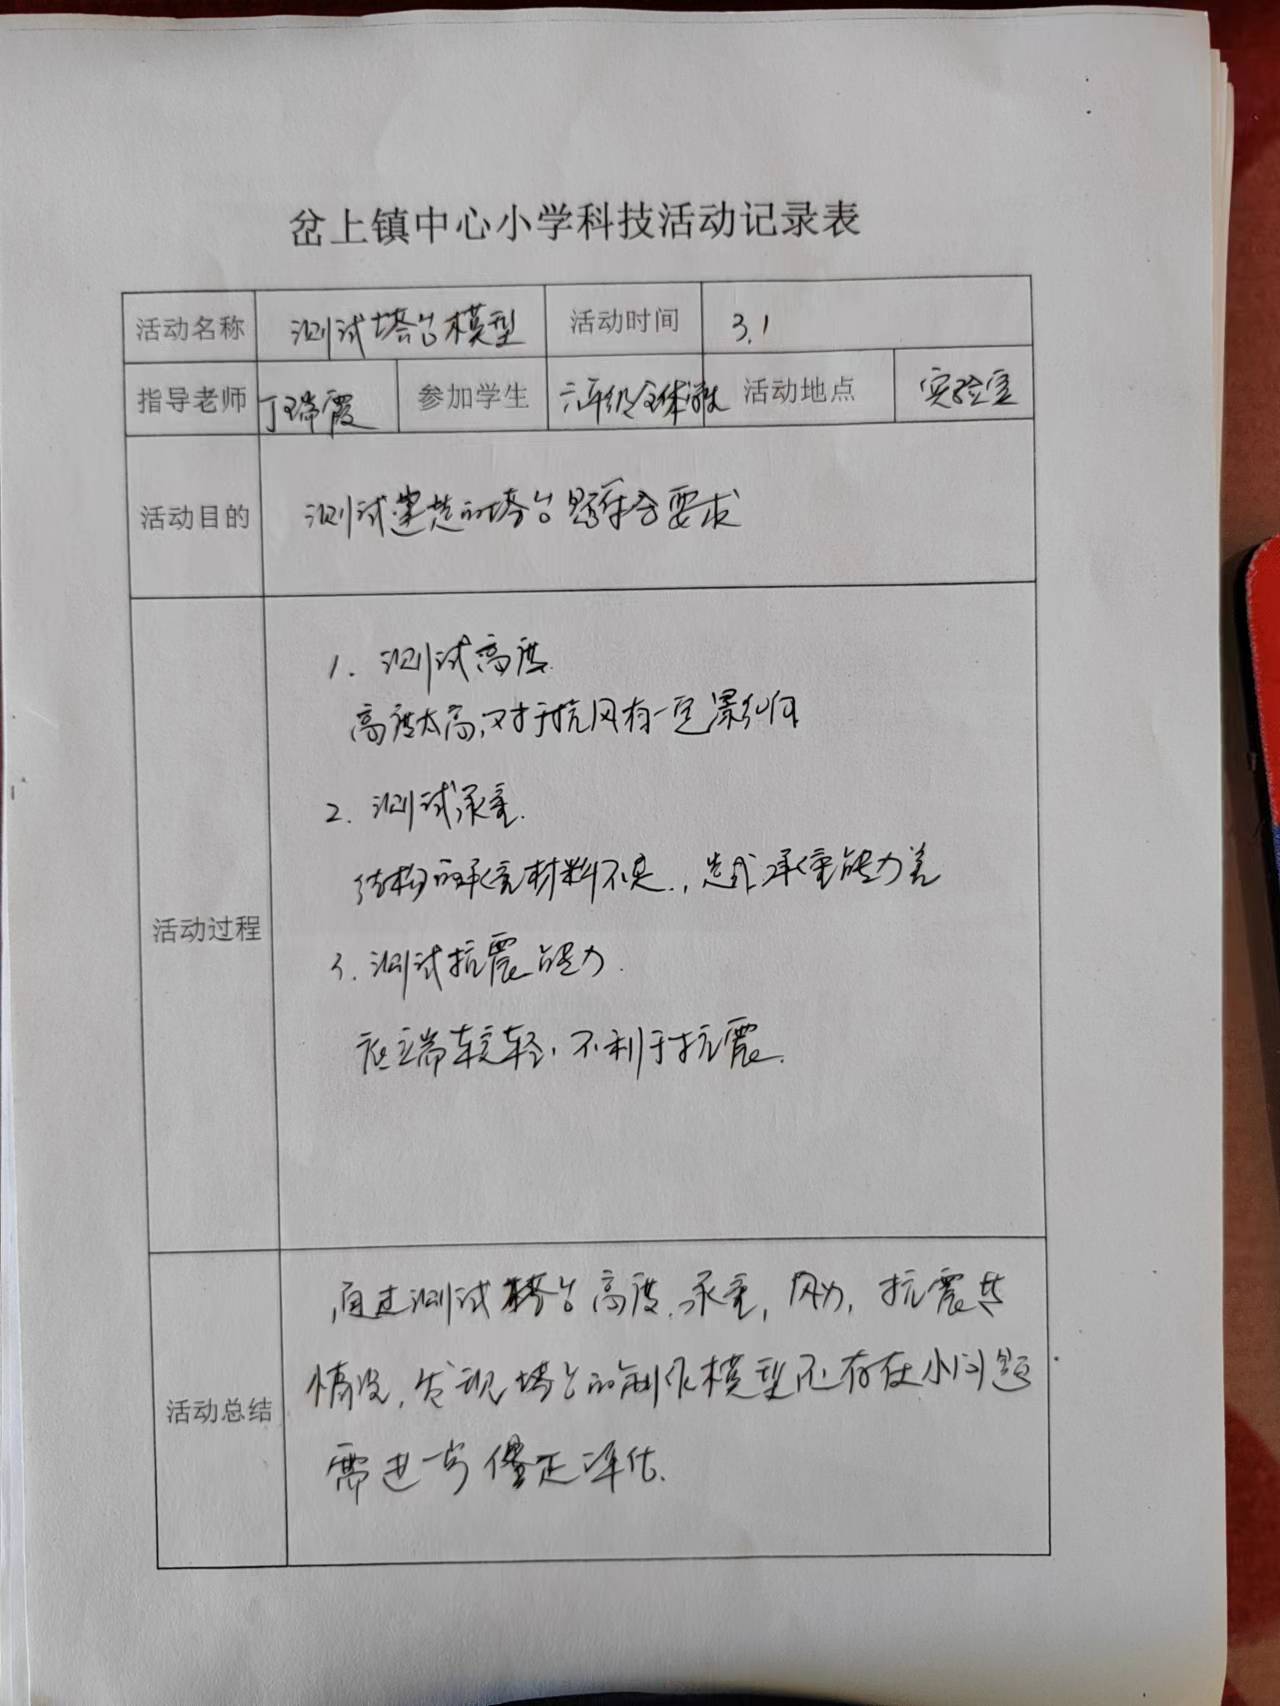 岔上镇中心小学科技活动记录表
活动名称 测试塔台模型 活动时间 3.1
指导老师 丁瑞霞 参加学生 六年级全体学生 活动地点 实验室
活动目的 测试建造的塔台是否符合要求
活动过程
1. 测试高度.
高度太高,对于抗风有一定影响
2. 测试承重.
结构的承重材料不足,造成承重能力差
3. 测试抗震能力.
底端较轻,不利于抗震.
活动总结
通过测试塔台高度.承重,风力,抗震其
情况,发现塔台的制作模型还存在小问题
需进一步修正评估.